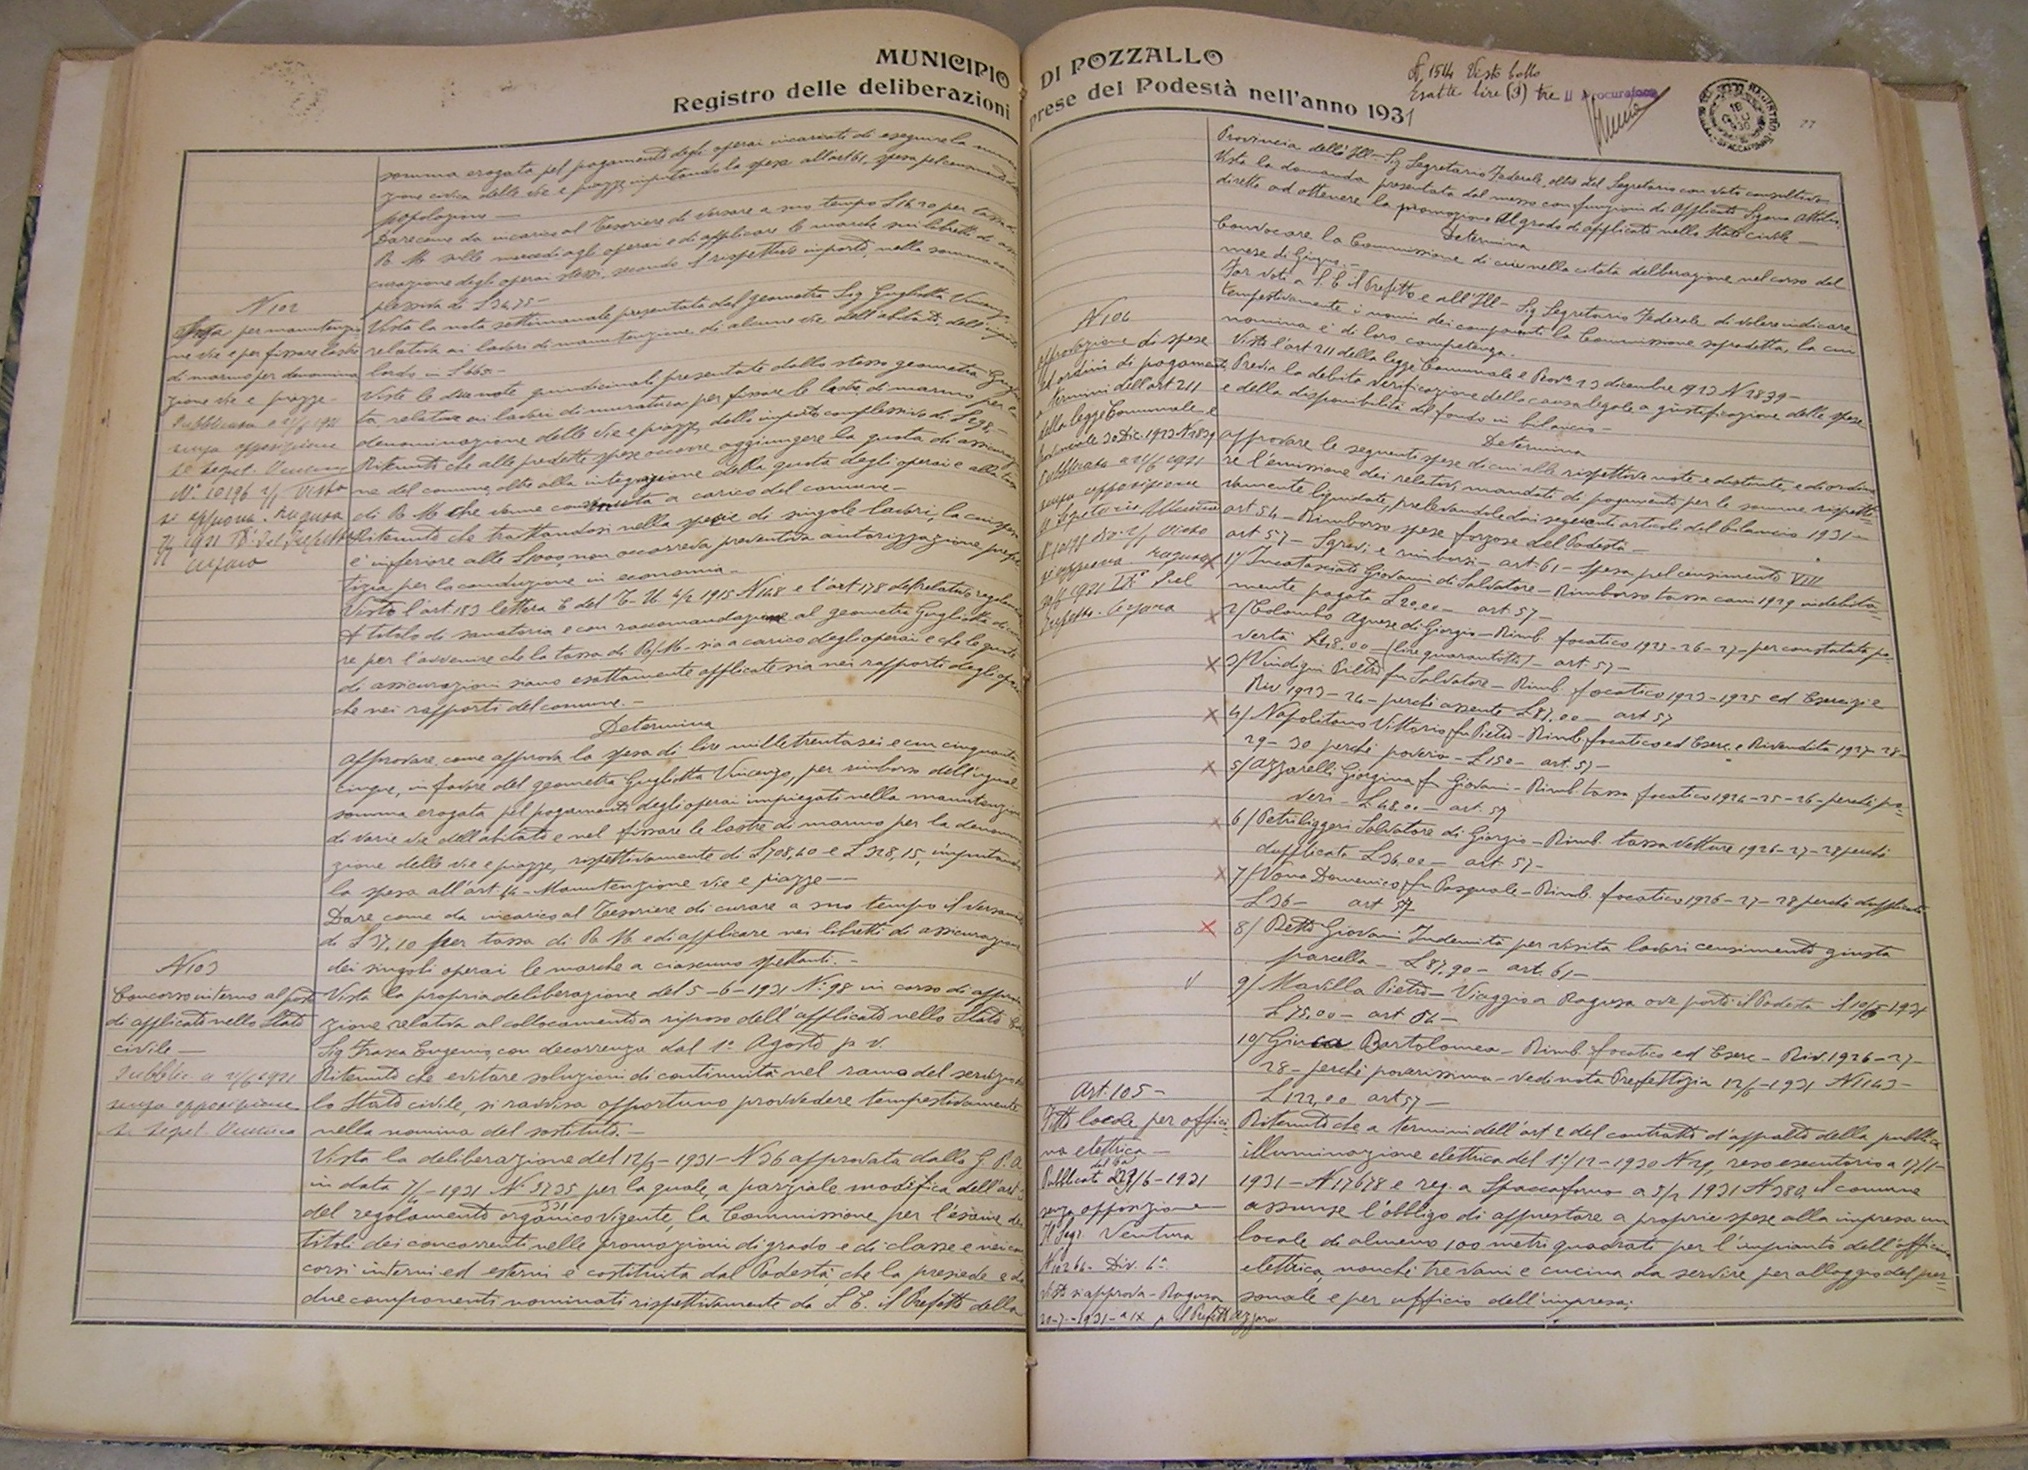 MUNICIPIO DI POZZALLO
Registro delle deliberazioni prese del Podestà nell'anno 1931
somma erogata pel pagamento degli operai incaricati di eseguire la
zione civica delle vie e piazze, imputando la spesa all'art 61, spesa pel censimento
popolazione —
Dare come da incarico al Tesoriere di versare a suo tempo L 16.20 per tassa
R. M. sulle mercedi agli operai e di applicare le marche sui libretti di
curazione degli operai stessi, secondo il rispettivo importo, nella somma com
plessiva di L 34,75 —
N 102
Spesa per manutenzio
ne vie e per fissare lastre
di marmo per denomina
zione vie e piazze —
Pubblicata
senza opposizione
Il Segret. Ventura
N° 10196 Visto
si approva. Ragusa
Vista la nota settimanale presentata dal geometra Sig Gugliotta Vincenzo
relativa ai lavori di manutenzione di alcune vie dell'abitato, dell'importo
lordo in L
Viste le due note quindicinali presentate dallo stesso geometra Guglio
ta, relative ai lavori di muratura per fissare le lastre di marmo per la
denominazione delle vie e piazze, dello importo complessivo di L
Ritenuto che alle predette spese occorre aggiungere la quota di assicura
ne del comune, oltre alla integrazione della quota degli operai e alla tassa
di R. M. che venne a carico del comune —
Ritenuto che trattandosi nella specie di singoli lavori, la cui spesa
è inferiore alle L 1000, non occorreva preventiva autorizzazione prefet
tizia per la conduzione in economia —
Visto l'art 183 lettera E del T. U. 4/2 1915 N 148 e l'art 178 del relativo regolamento
A titolo di sanatoria e con raccomandazione al geometra Gugliotta di
re per l'avvenire che la tassa di R. M. sia a carico degli operai e che le quote
di assicurazioni siano esattamente applicate sia nei rapporti degli operai
che nei rapporti del comune. —
Determina
approvare come approva la spesa di lire milletrentasei e cent cinquanta
cinque, in favore del geometra Gugliotta Vincenzo, per rimborso dell'egual
somma erogata pel pagamento degli operai impiegati nella manutenzione
di varie vie dell'abitato e nel fissare le lastre di marmo per la denomi
zione delle vie e piazze, rispettivamente di L 708,40 e L 328,15, imputando
la spesa all'art 14 – Manutenzione vie e piazze —
Dare come da incarico al Tesoriere di curare a suo tempo il versam
di L 37.10 per tassa di R. M. e di applicare nei libretti di assicurazione
dei singoli operai le marche a ciascuno spettanti. —
N 103
Concorso interno al posto
di applicato nello Stato
civile —
Pubblic. a
senza opposizione
Il Segret. Ventura
Vista la propria deliberazione del 5-6-1931 N. 98 in corso di approva
zione relativa al collocamento a riposo dell'applicato nello Stato Civ
Sig. Frasca Eugenio, con decorrenza dal 1° Agosto p v.
Ritenuto che evitare soluzioni di continuità nel ramo del servizio
lo Stato civile, si ravvisa opportuno provvedere tempestivamente
nella nomina del sostituto. —
Vista la deliberazione del 12/3-1931 – N 36 approvata dalla G. P. A.
in data 7/4-1931 N° 5735 per la quale, a parziale modifica dell'art
331
del regolamento organico vigente, la Commissione per l'esame dei
titoli dei concorrenti nelle promozioni di grado e di classe e nei con
corsi interni ed esterni è costituita dal Podestà, che la presiede e da
due componenti nominati rispettivamente da S. E. il Prefetto della
N, 1514 Visto bollo
Esatte lire (3) tre Il Procuratore
77
Provincia dell'Ill– Sig Segretario Federale, oltre del Segretario con voto consultivo
Vista la domanda presentata dal messo con funzioni di Applicato
diretta ad ottenere la promozione al grado di applicato nello Stato civile —
Determina
Convocare la Commissione di cui nella citata deliberazione nel corso del
mese di Giugno. —
Far voti a S. E. il Prefetto e all'Ill– Sig Segretario Federale di volere indicare
tempestivamente i nomi dei componenti la Commissione sopradetta, la cui
nomina è di loro competenza. —
N 104
approvazione di spese
ed ordini di pagamenti
a termini dell'art 211
della legge Comunale e
Provinciale 30 Dic. 1923 N 2839
Pubblicata a
senza opposizione
Il Segretario Ventura
si approva Ragusa
Visto l'art 211 della legge Comunale e Prov. 23 dicembre 1923 N 2839 —
Previa la debita verificazione della causa legale a giustificazione delle spese
e della disponibilità del fondo in bilancio —
Determina
approvare le seguenti spese di cui alle rispettive note e distinte, e di ordina
re l'emissione dei relativi mandati di pagamento per le somme rispetti-
vamente liquidate, prelevandole dai seguenti articoli del bilancio 1931 —
art 54 – Rimborso spese forzose del Podestà —
art 57 – Sgravi e rimborsi – art. 61 – Spesa pel censimento VIII
x 1°/ Incatasciato Giovanni di Salvatore – Rimborso tassa cani 1929 indebita-
mente pagata L 20,00 – art. 57 –
x 2/ Colombo Agnese di Giorgio – Rimb. focatico 1925-26-27 – per constatata po-
vertà L 48.00 – (lire quarantotto) – art. 57 –
x 3/ Vindigni Pietro fu Salvatore – Rimb. focatico 1923-1925 ed Esercizi e
Riv 1923-24 – perchè assente L 87.00 – art 57
x 4/ Napolitano Vittorio fu Pietro – Rimb. focatico ed Eserc. e Rivendita 1927-28-
29-30 perchè poverio – L 150 – art. 57 –
x 5/ Azzarelli Giorgina fu Giovanni – Rimb tassa focatico 1924-25-26 – perchè po-
vera – L 48.00 – art. 57
x 6/ Petriliggeri Salvatore di Giorgio – Rimb. tassa vetture 1926-27-28 perchè
duplicata L 36,00 – art. 57 –
x 7/ Vona Domenico fu Pasquale – Rimb. focatico 1926-27-28 perchè duplicata
L 36 – art 57
x 8/ Giovanni Indennità per visita lavori censimento giusta
parcella – L 87,90 – art. 61 –
9/ Mavilla Pietro – Viaggio a Ragusa ove portò il Podestà il 10/5 1931
L 75.00 – art 54 –
10/ Giuca Bartolomeo – Rimb. focatico ed Eserc – Riv. 1926-27-
28 – perchè poverissima – vedi nota Prefettizia 12/5-1931 N 1143 –
L 122,00 art 57 —
Art. 105 –
Fitto locale per offici-
na elettrica —
Pubblicata 28/6-1931
senza opposizione
Il Segr. Ventura
N 10264 – Div. 4a
Visto si approva – Ragusa
20-7-1931-a IX p. Il Prefetto Azzaro
Ritenuto che a termini dell'art 2 del contratto d'appalto della pubblica
illuminazione elettrica del 1°/12-1930 N 29, reso esecutorio a 17/1-
1931 – N 17678 e reg. a Spaccaforno a 5/2 1931 N 380, il comune
assunse l'obbligo di apprestare a proprie spese alla impresa un
locale di almeno 100 metri quadrati per l'impianto dell'officina
elettrica, nonchè tre vani e cucina da servire per alloggio del per-
sonale e per ufficio dell'impresa;